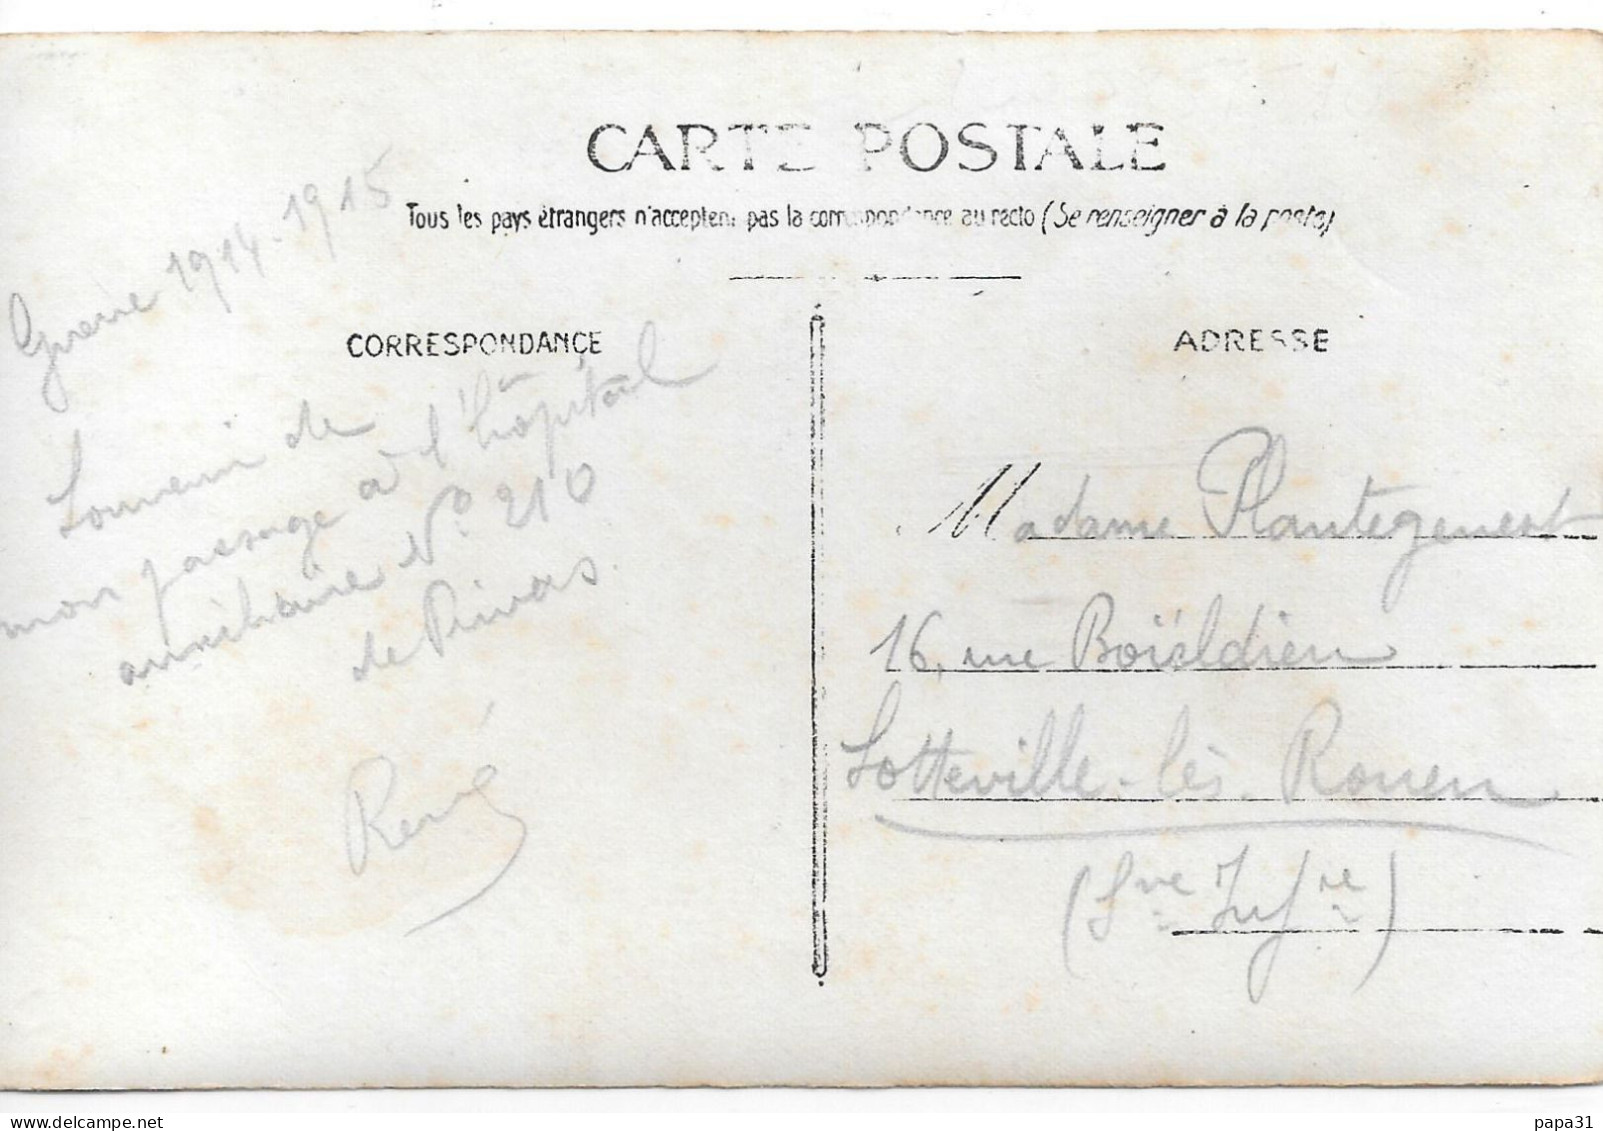 CARTE POSTALE
Tous les pays étrangers n'acceptent pas la correspondance au recto (Se renseigner à la poste)
CORRESPONDANCE
Guerre 1914-1915
Souvenir de
mon passage à l'hôpital
auxiliaire N° 210
de Privas.
René
ADRESSE
Madame Plantegenest
16, rue Boïeldieu
Sotteville-lès-Rouen
(Sne Infre)
papa31